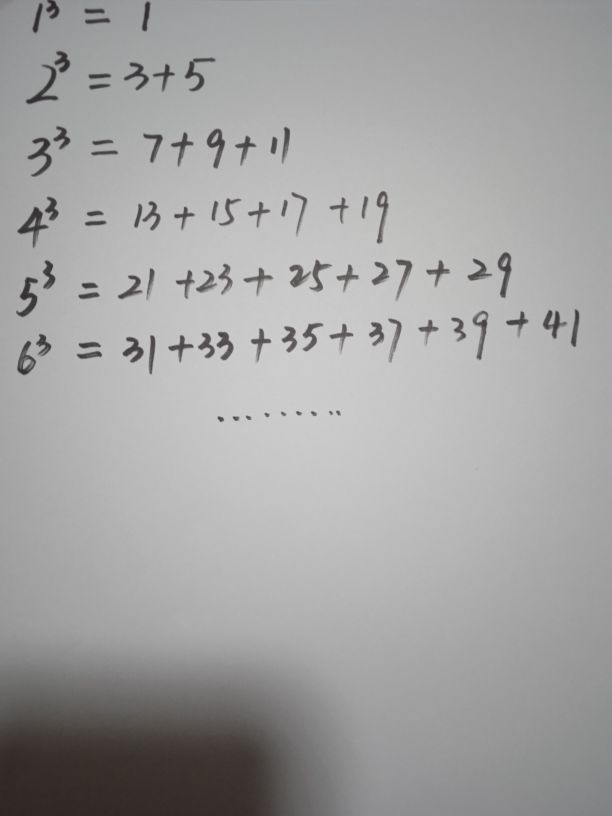 1³ = 1
2³ = 3+5
3³ = 7+9+11
4³ = 13+15+17+19
5³ = 21+23+25+27+29
6³ = 31+33+35+37+39+41
.........